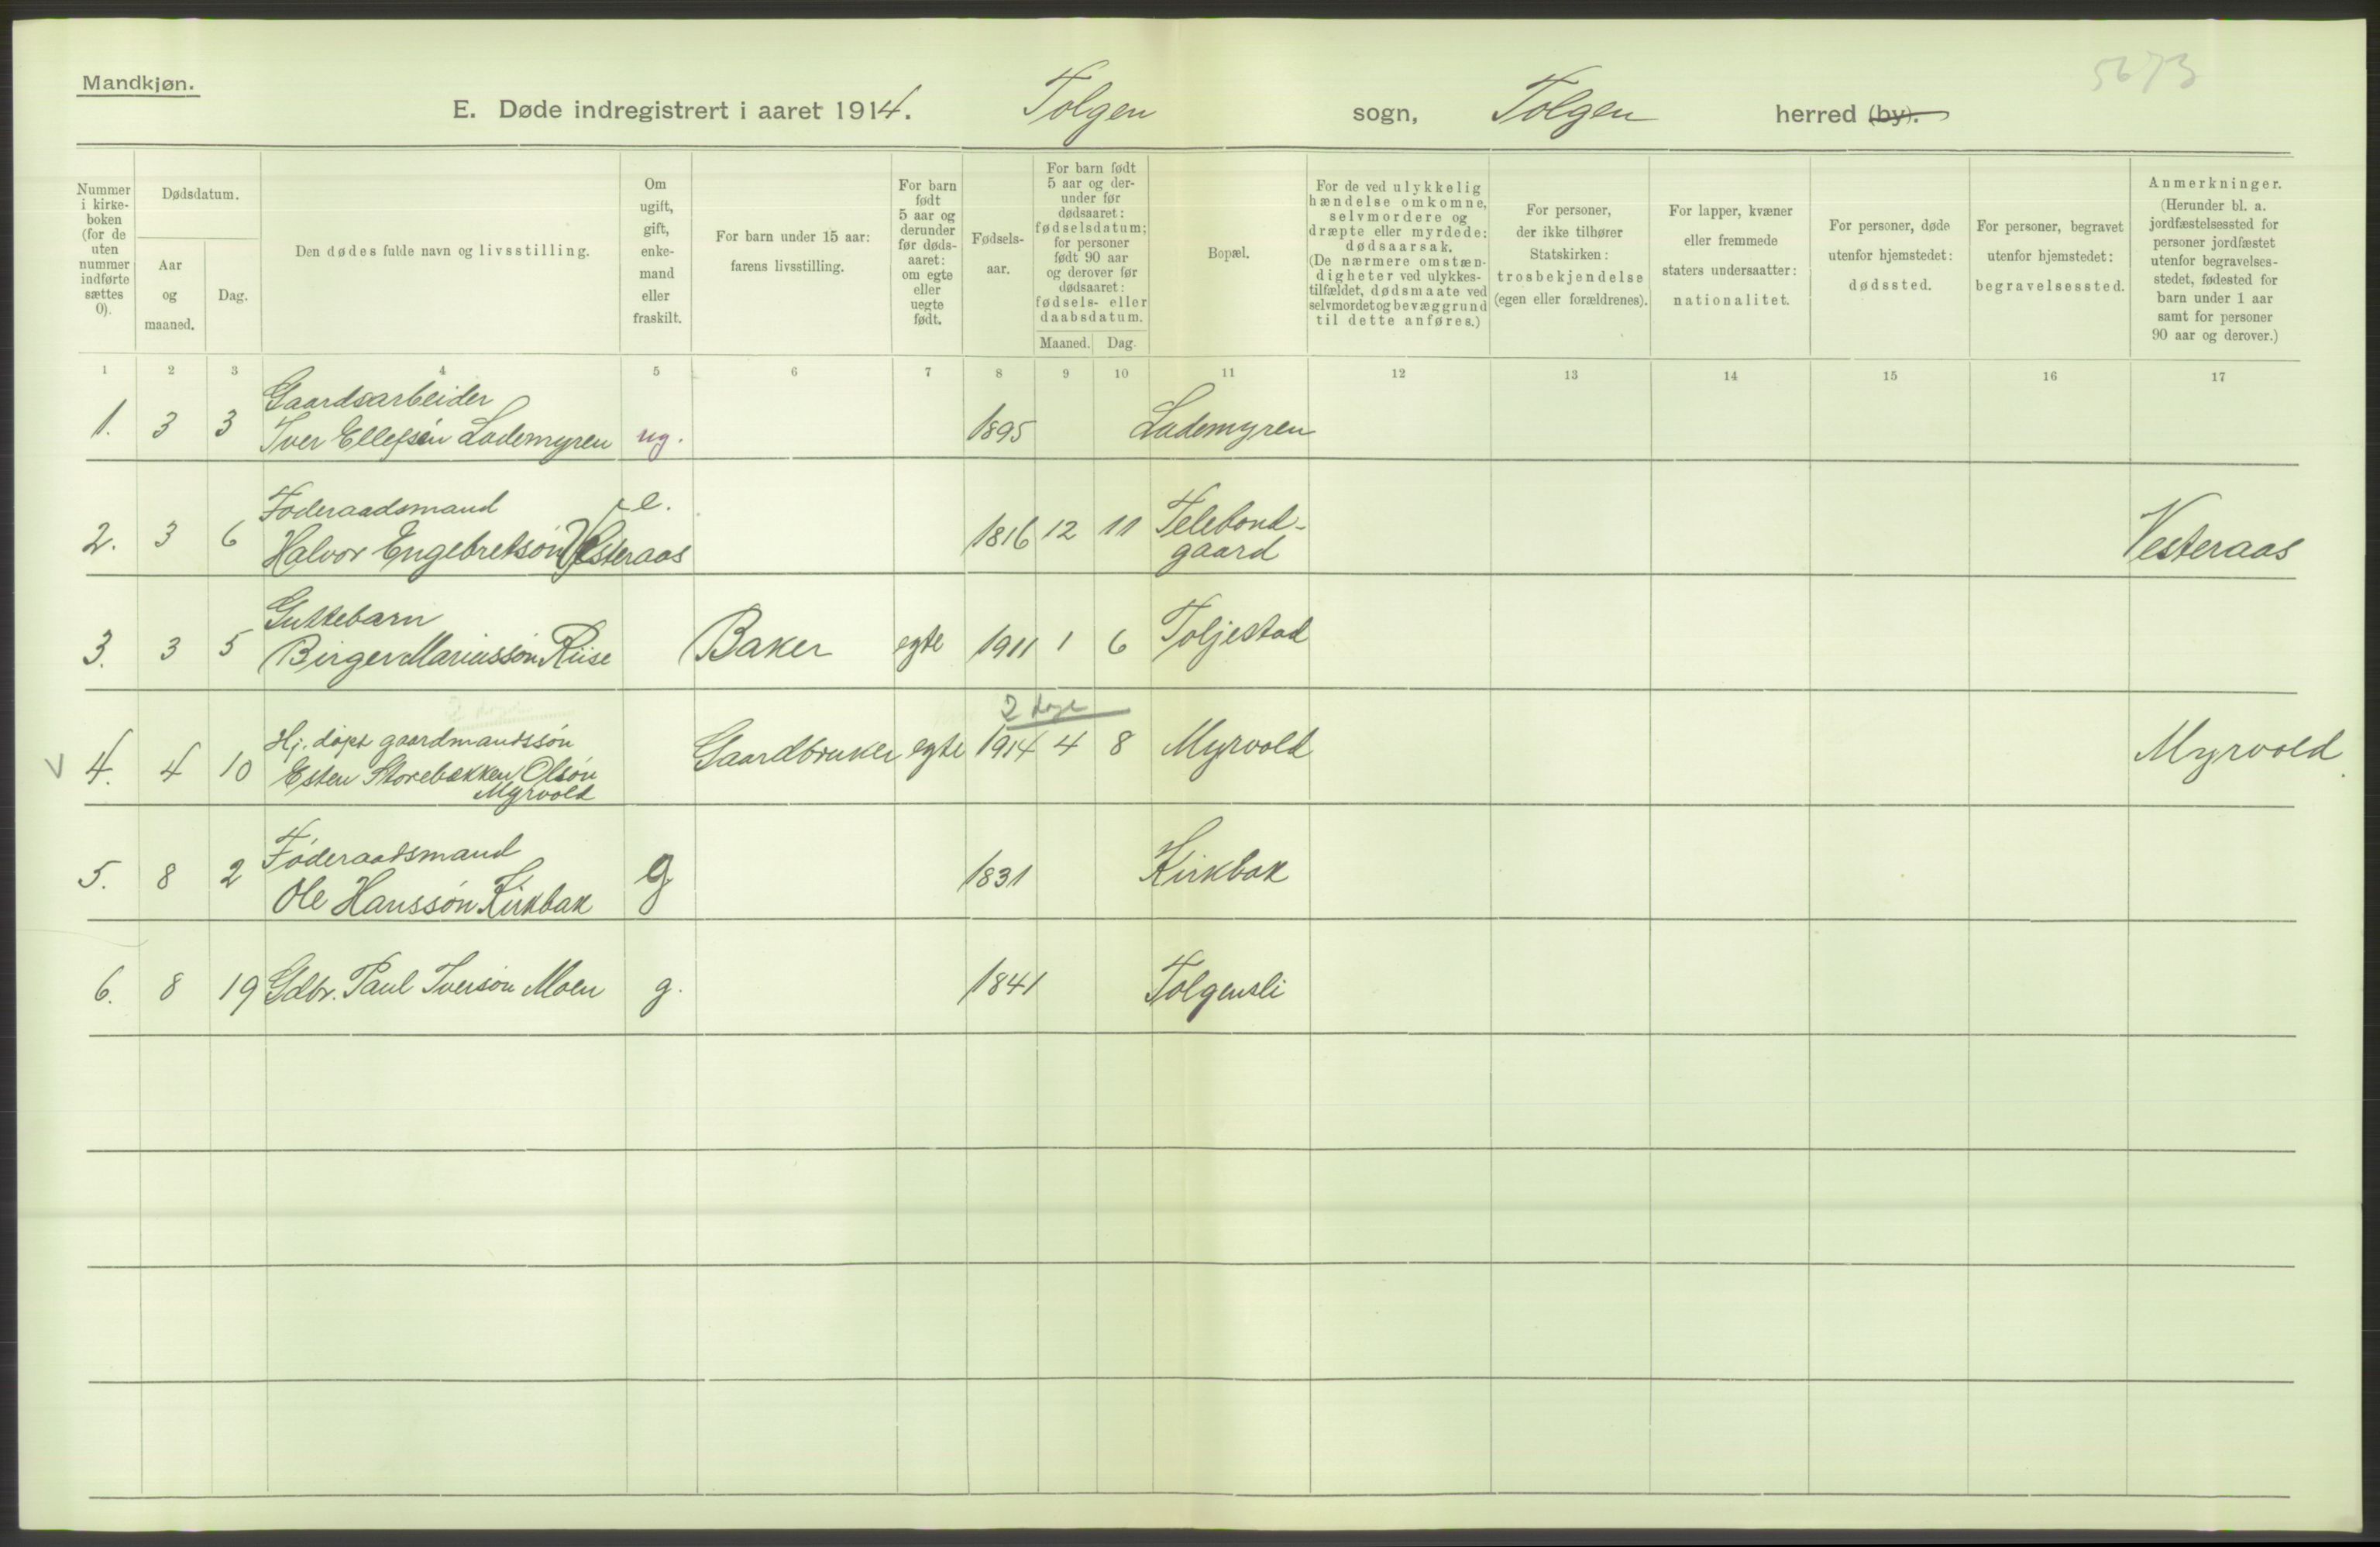 Mandkjøn.
5673
E. Døde indregistrert i aaret 1914. Tolgen sogn, Tolgen herred (by).
Nummer
i kirke-
boken
(for de
uten
nummer
indførte
sættes
0).
Dødsdatum.
Aar
og
maaned.
Dag.
Den dødes fulde navn og livsstilling.
Om
ugift,
gift,
enke-
mand
eller
fraskilt.
For barn under 15 aar:
farens livsstilling.
For barn
født
5 aar og
derunder
før døds-
aaret:
om egte
eller
uegte
født.
Fødsels-
aar.
For barn født
5 aar og der-
under før
dødsaaret:
fødselsdatum;
for personer
født 90 aar
og derover før
dødsaaret:
fødsels- eller
daabsdatum.
Maaned. Dag.
Bopæl.
For de ved ulykkelig
hændelse omkomne,
selvmordere og
dræpte eller myrdede:
dødsaarsak.
(De nærmere omstæn-
digheter ved ulykkes-
tilfældet, dødsmaate ved
selvmordet og bevæggrund
til dette anføres.)
For personer,
der ikke tilhører
Statskirken:
trosbekjendelse
(egen eller forældrenes).
For lapper, kvæner
eller fremmede
staters undersaatter:
nationalitet.
For personer, døde
utenfor hjemstedet:
dødssted.
For personer, begravet
utenfor hjemstedet:
begravelsessted.
Anmerkninger.
(Herunder bl. a.
jordfæstelsessted for
personer jordfæstet
utenfor begravelses-
stedet, fødested for
barn under 1 aar
samt for personer
90 aar og derover.)
1 2 3 4 5 6 7 8 9 10 11 12 13 14 15 16 17
Gaardsarbeider
1. 3 3 Iver Ellefsen Lademyren ug. 1895 Lademyren
Føderaadsmand e.
2. 3 6 Halvor Engebretsøn Vesteraas 1816 12 11 Telebond-
gaard Vesteraas
Guttebarn
3. 3 5 Birger Mariussøn Riise Baker egte 1911 1 6 Toljestad
2 dage
Hj. døpt gaardmandssøn
4. 4 10 Esten Storebækken Olsøn Gaardbruker egte 1914 4 8 Myrvold Myrvold
Myrvold
Føderaadsmand
5. 8 2 Ole Hanssøn Kirkbak g 1831 Kirkbak
6. 8 19 Gdbr. Paul Iversøn Moen g. 1841 Tolgensli